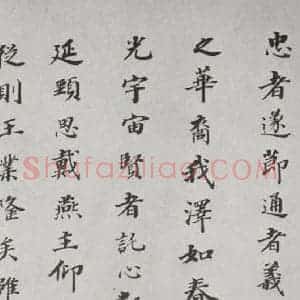 忠者遂節通者義
之華裔我澤如春
光宇宙賢者託心
延頸思戴燕主仰
從則王業隆矣雖
Shufaziliao.com